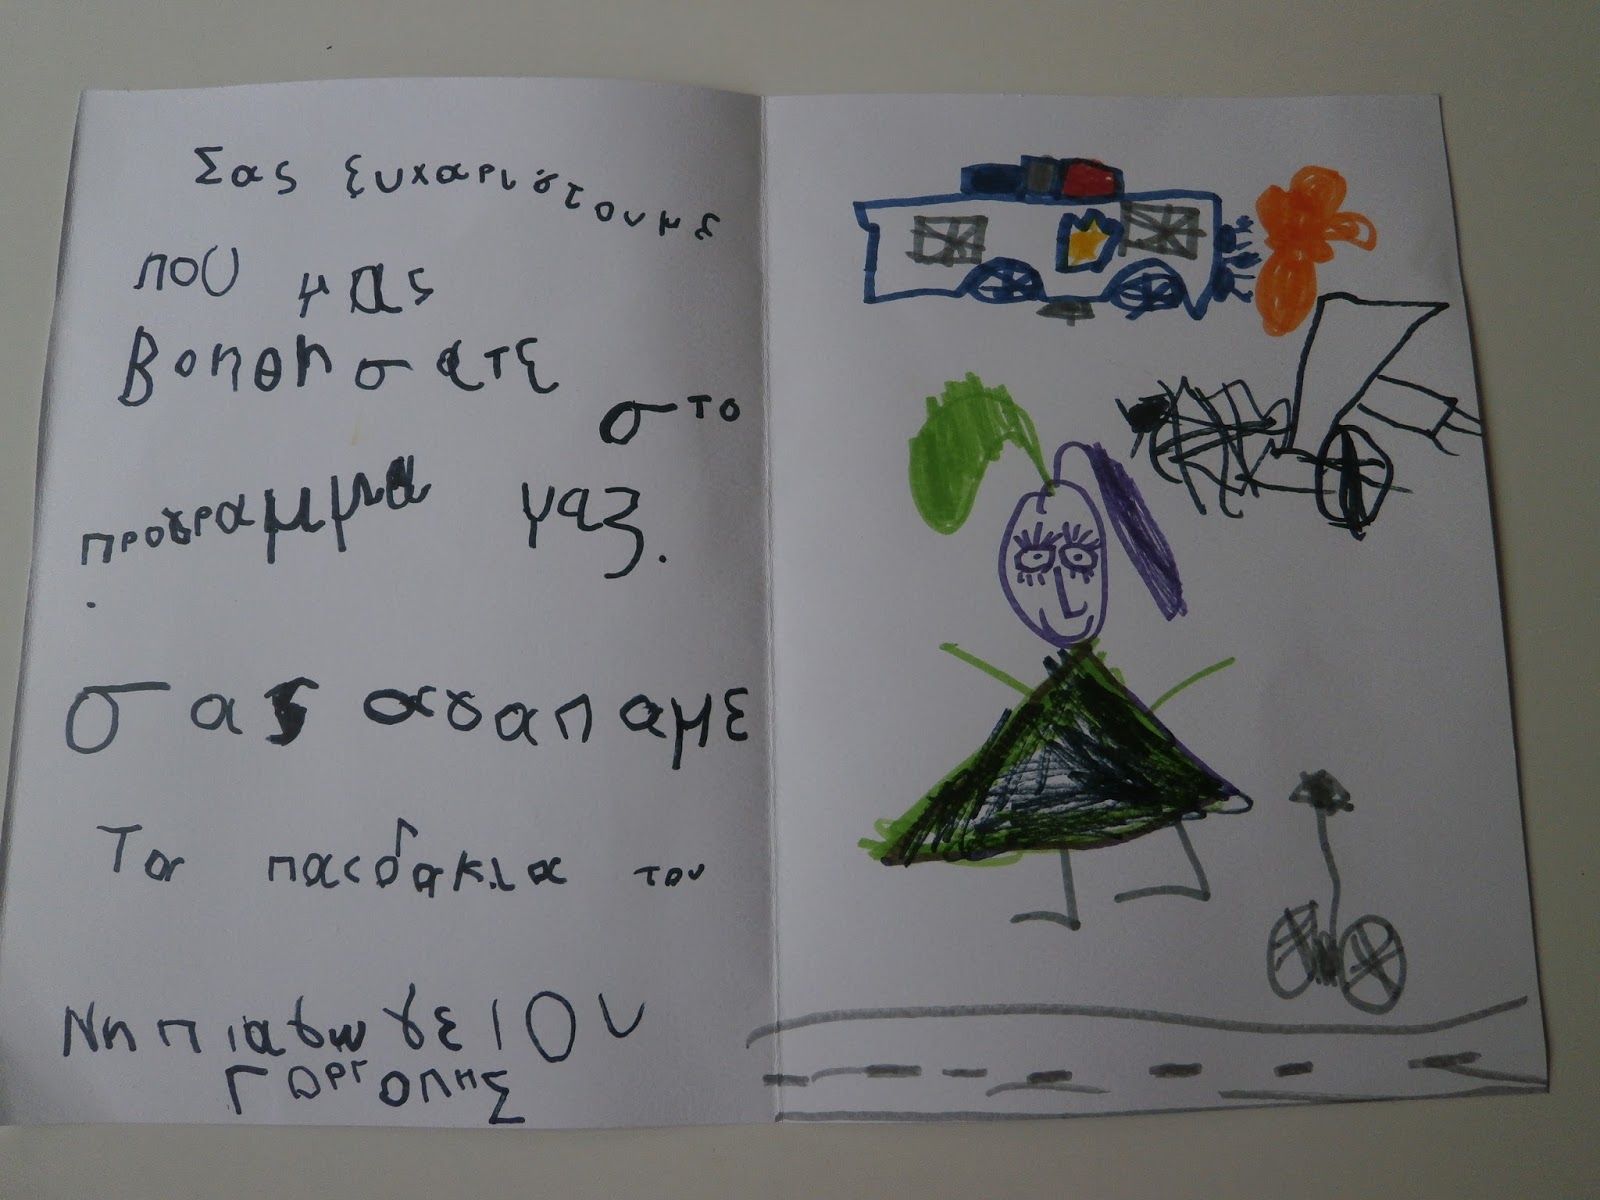 Σας ξυχαριστουμε
που μας
Βοηθησατε στο
προγραμμμα μας.
σας αγαπαμε
Τα παιδακια του
Νηπιαγωγειου
Γοργοπης